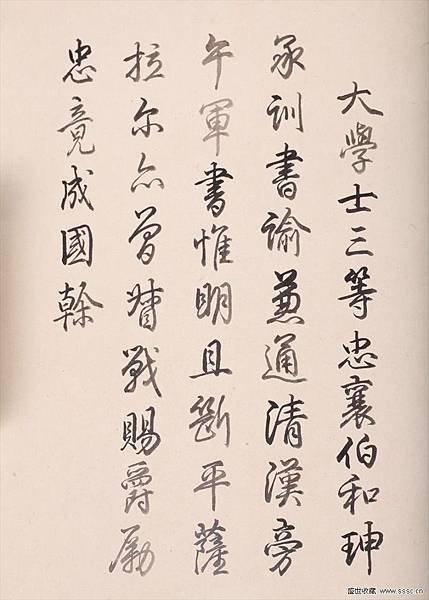 大學士三等忠襄伯和珅
承訓書諭兼通清漢旁
午軍書惟明且斷平薩
拉尔亦曾督戰賜爵勵
忠竟成國幹
盛世收藏 www.sssc.cn